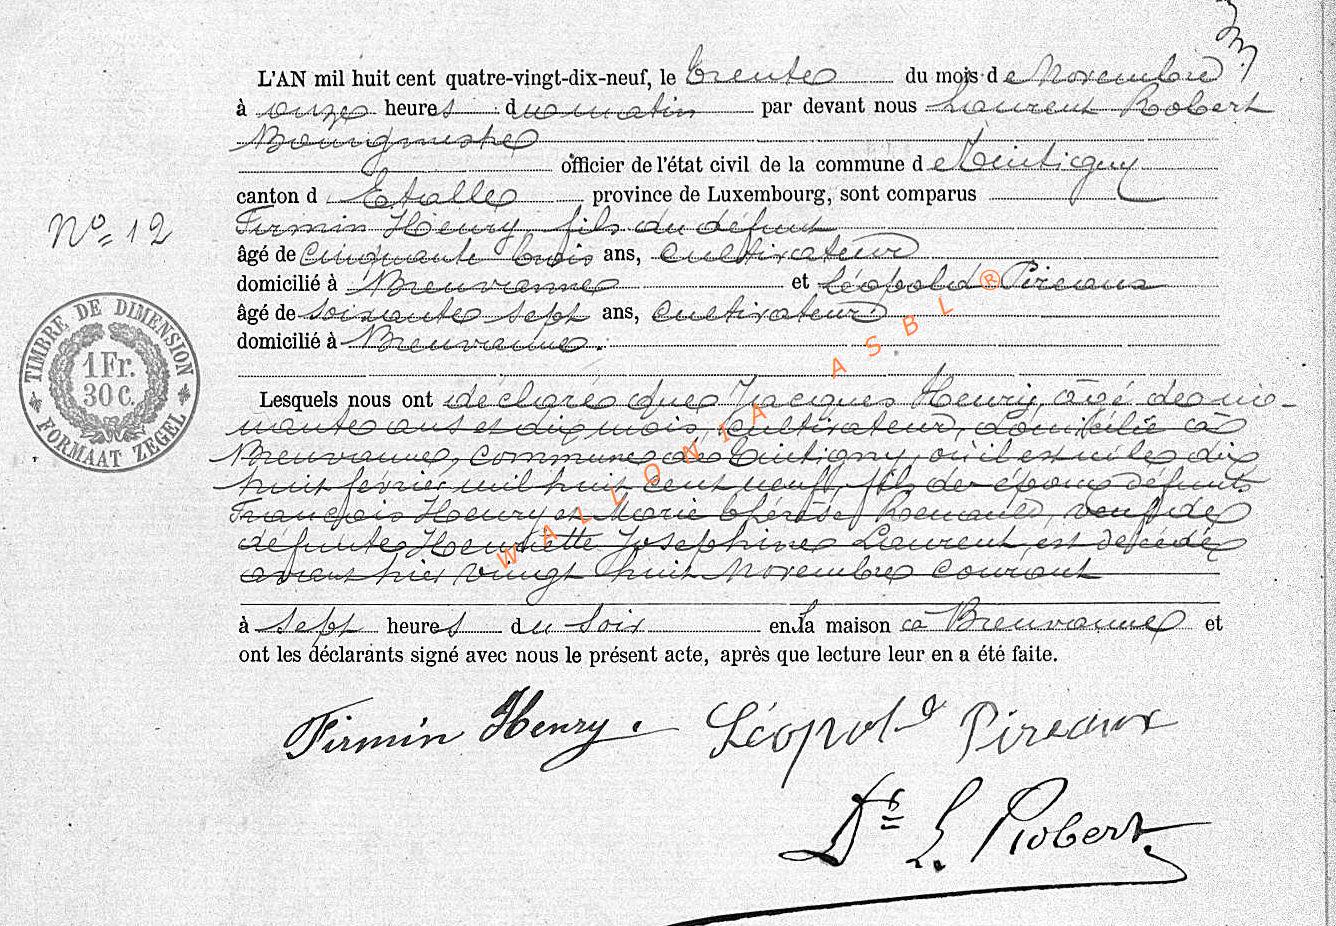 L'AN mil huit cent quatre-vingt-dix-neuf, le trente du mois de Novembre
à onze heures du matin par devant nous Laurent Robert
Bourgmestre
officier de l'état civil de la commune de Tintigny
canton d Etalle province de Luxembourg, sont comparus
Firmin Henry, fils du défunt
N° 12
âgé de cinquante trois ans, cultivateur
domicilié à Breuvanne et Léopold Pireaux
âgé de soixante sept ans, cultivateur
domicilié à Breuvanne.
TIMBRE DE DIMENSION
1 Fr.
30 C.
FORMAAT ZEGEL
Lesquels nous ont déclaré que Jacques Henry, âgé de no-
nante ans et dix mois, cultivateur, domicilié à
Breuvanne, commune de Tintigny, où il est né le dix
huit février mil huit cent neuf, fils des époux défunts
François Henry et Marie Thérèse, veuf de
défunte Henriette Josephine Laurent, est décédé
avant hier vingt huit Novembre courant
à sept heures du soir en la maison à Breuvanne et
ont les déclarants signé avec nous le présent acte, après que lecture leur en a été faite.
Firmin Henry. Léopold Pireaux
Dr L. Robert.
WALLONIA ASBL ®